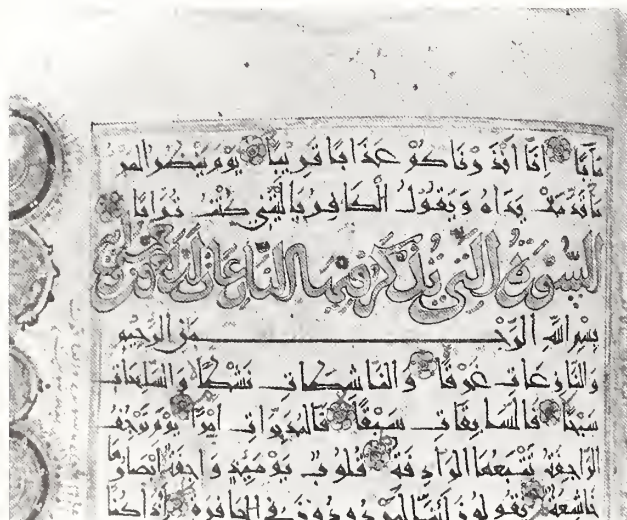 مآبا إنا أنذرناكم عذابا قريبا يوم ينظر المر
ما قدمت يداه ويقول الكافر يا ليتني كنت ترابا
السورة التي تذكر فيها النازعات
بسم الله الرحمن الرحيم
والنازعات غرقا والناشطات نشطا والسابحات
سبحا فالسابقات سبقا فالمدبرات أمرا يوم ترجف
الراجفة تتبعها الرادفة قلوب يومئذ واجفة أبصارها
خاشعة يقولون أئنا لمردودون في الحافرة أئذا كنا